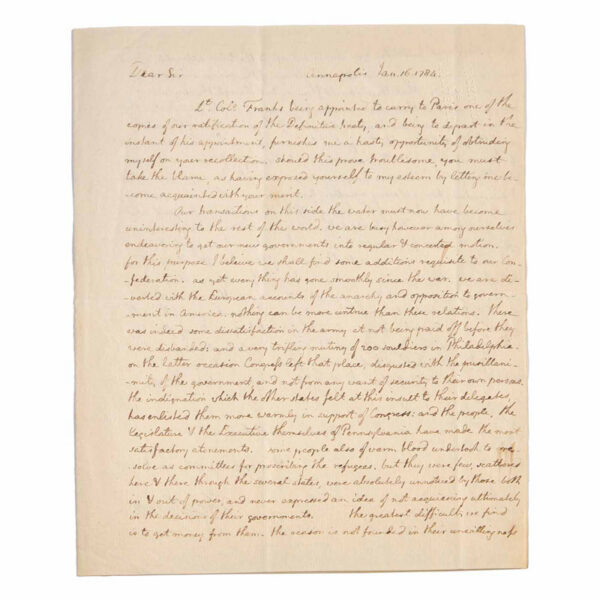 Dear Sir Annapolis Jan. 16. 1784.
Lt. Colo. Franks being appointed to carry to Paris one of the
copies of our ratification of the Definitive treaty, and being to depart in the
instant of his appointment, furnishes me a hasty opportunity of obtruding
myself on your recollection. should this prove troublesome you must
take the blame, as having exposed yourself to my esteem by letting me be-
come acquainted with your merit.
Our transactions on this side the water must now have become
uninteresting to the rest of the world. we are busy however among ourselves
endeavoring to get our new governments into regular & concerted motion.
for this purpose I believe we shall find some additions requisite to our Con-
-federation. as yet every thing has gone smoothly since the war. we are di-
-verted with the European accounts of the anarchy and opposition to govern-
-ment in America. nothing can be more untrue than these relations. There
was indeed some dissatisfaction in the army at not being paid off before they
were disbanded; and a very trifling mutiny of 200 souldiers in Philadelphia.
on the latter occasion Congress left that place, disgusted with the pusillani-
-mity of the government, and not from any want of security to their own persons.
the indignation which the other states felt at this insult to their delegates
has enlisted them more warmly in support of Congress: and the people, the
Legislature & the Executive themselves of Pennsylvania have made the most
satisfactory atonements. some people also of warm blood undertook to re-
-solve as committees for proscribing the refugees. but they were few, scattered
here & there through the several states, were absolutely unnoticed by those both
in & out of power, and never expressed an idea of not acquiescing ultimately
in the decision of their governments. the greatest difficulty we find
is to get money from them. the reason is not founded in their unwillingness